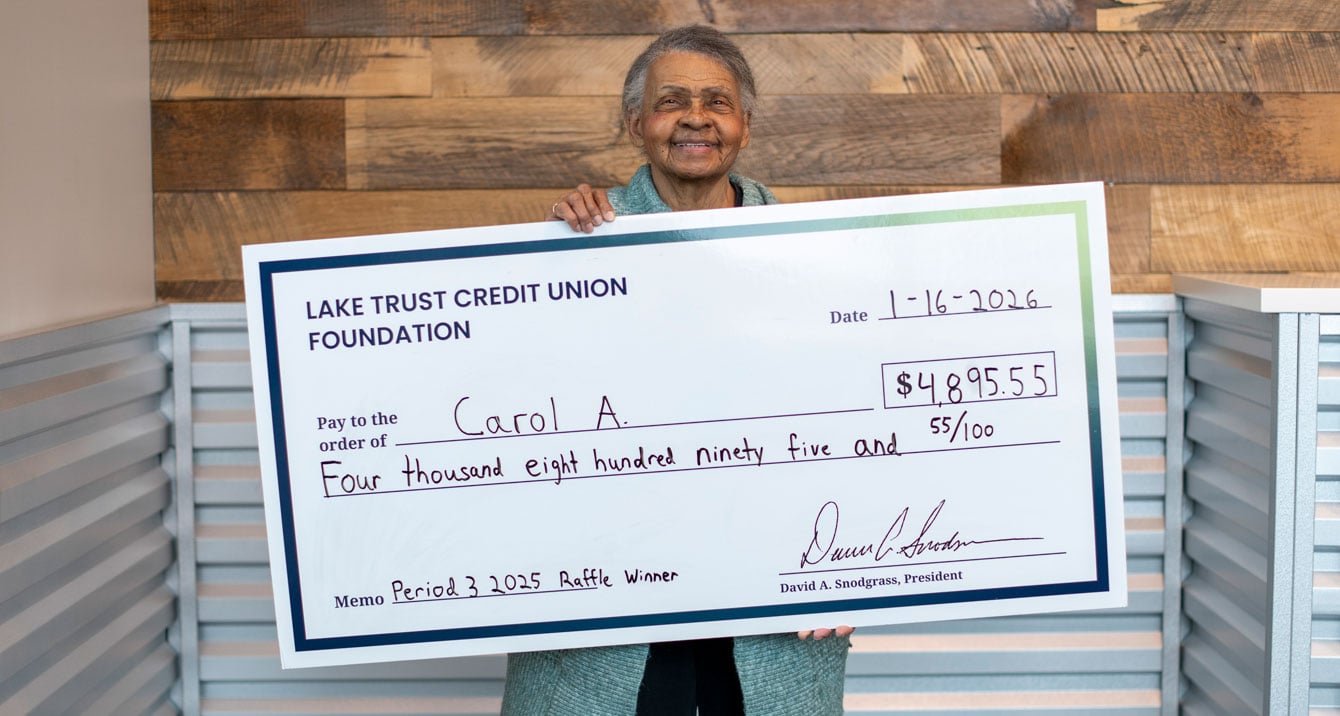 LAKE TRUST CREDIT UNION
FOUNDATION
Date 1-16-2026
$4,895.55
Pay to the
order of Carol A.
Four thousand eight hundred ninety five and 55/100
David A. Snodgrass, President
Memo Period 3 2025 Raffle Winner